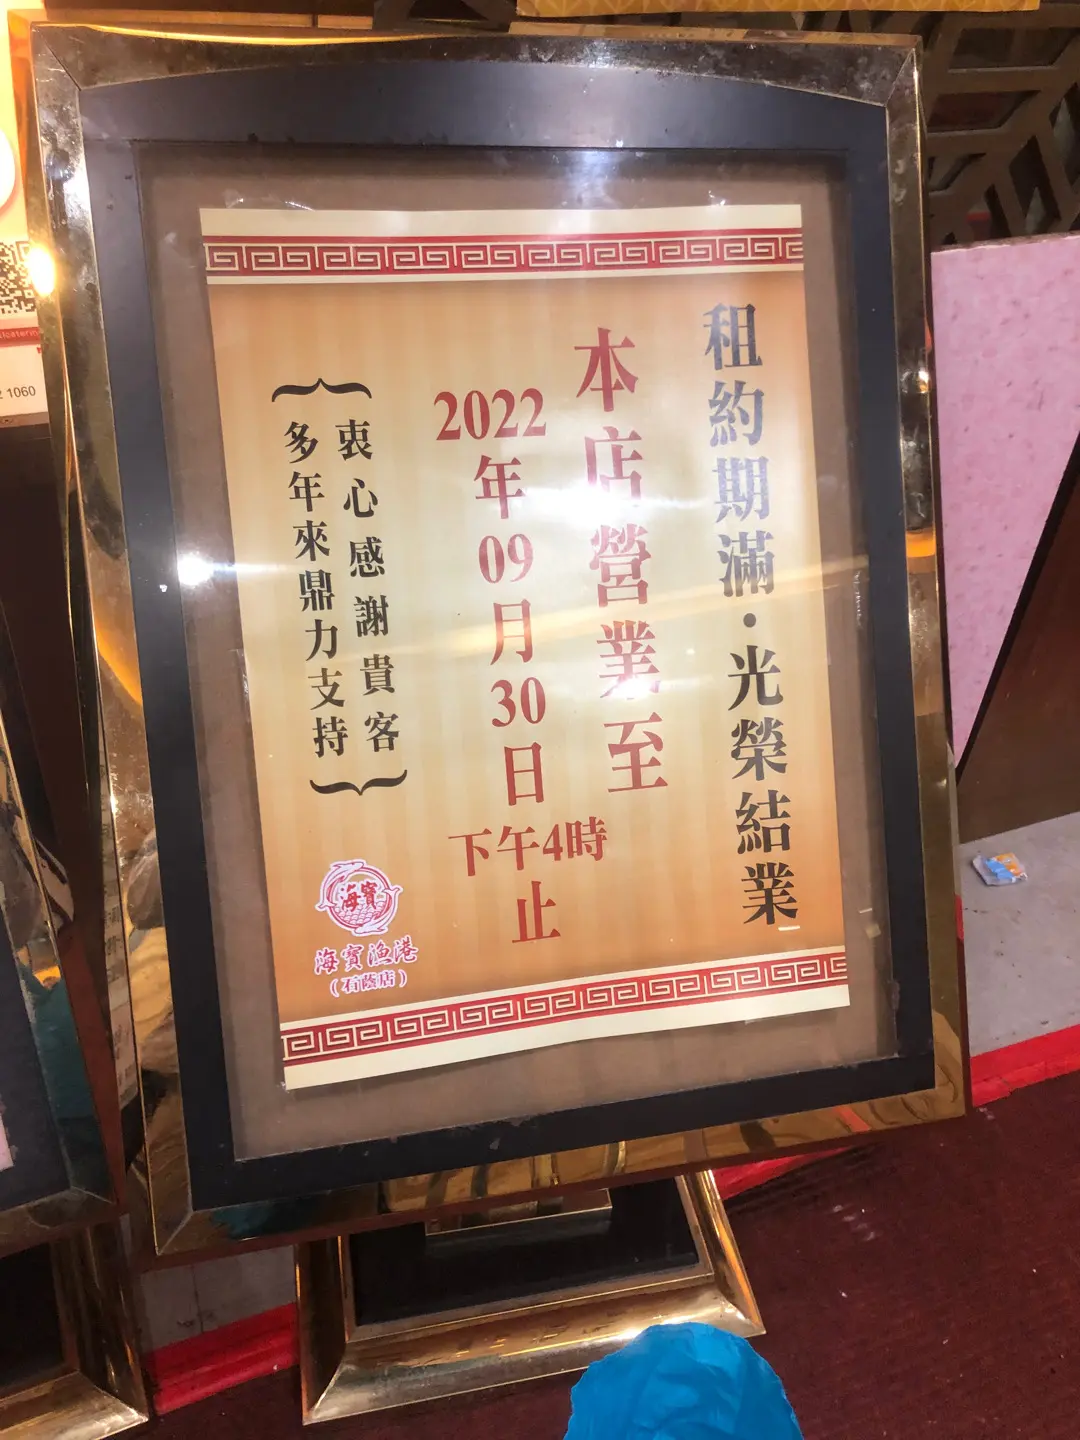 租約期滿·光榮結業
本店營業至
2022年09月30日
下午4時
止
衷心感謝貴客
多年來鼎力支持
海寶
海寶漁港
(石蔭店)
1060